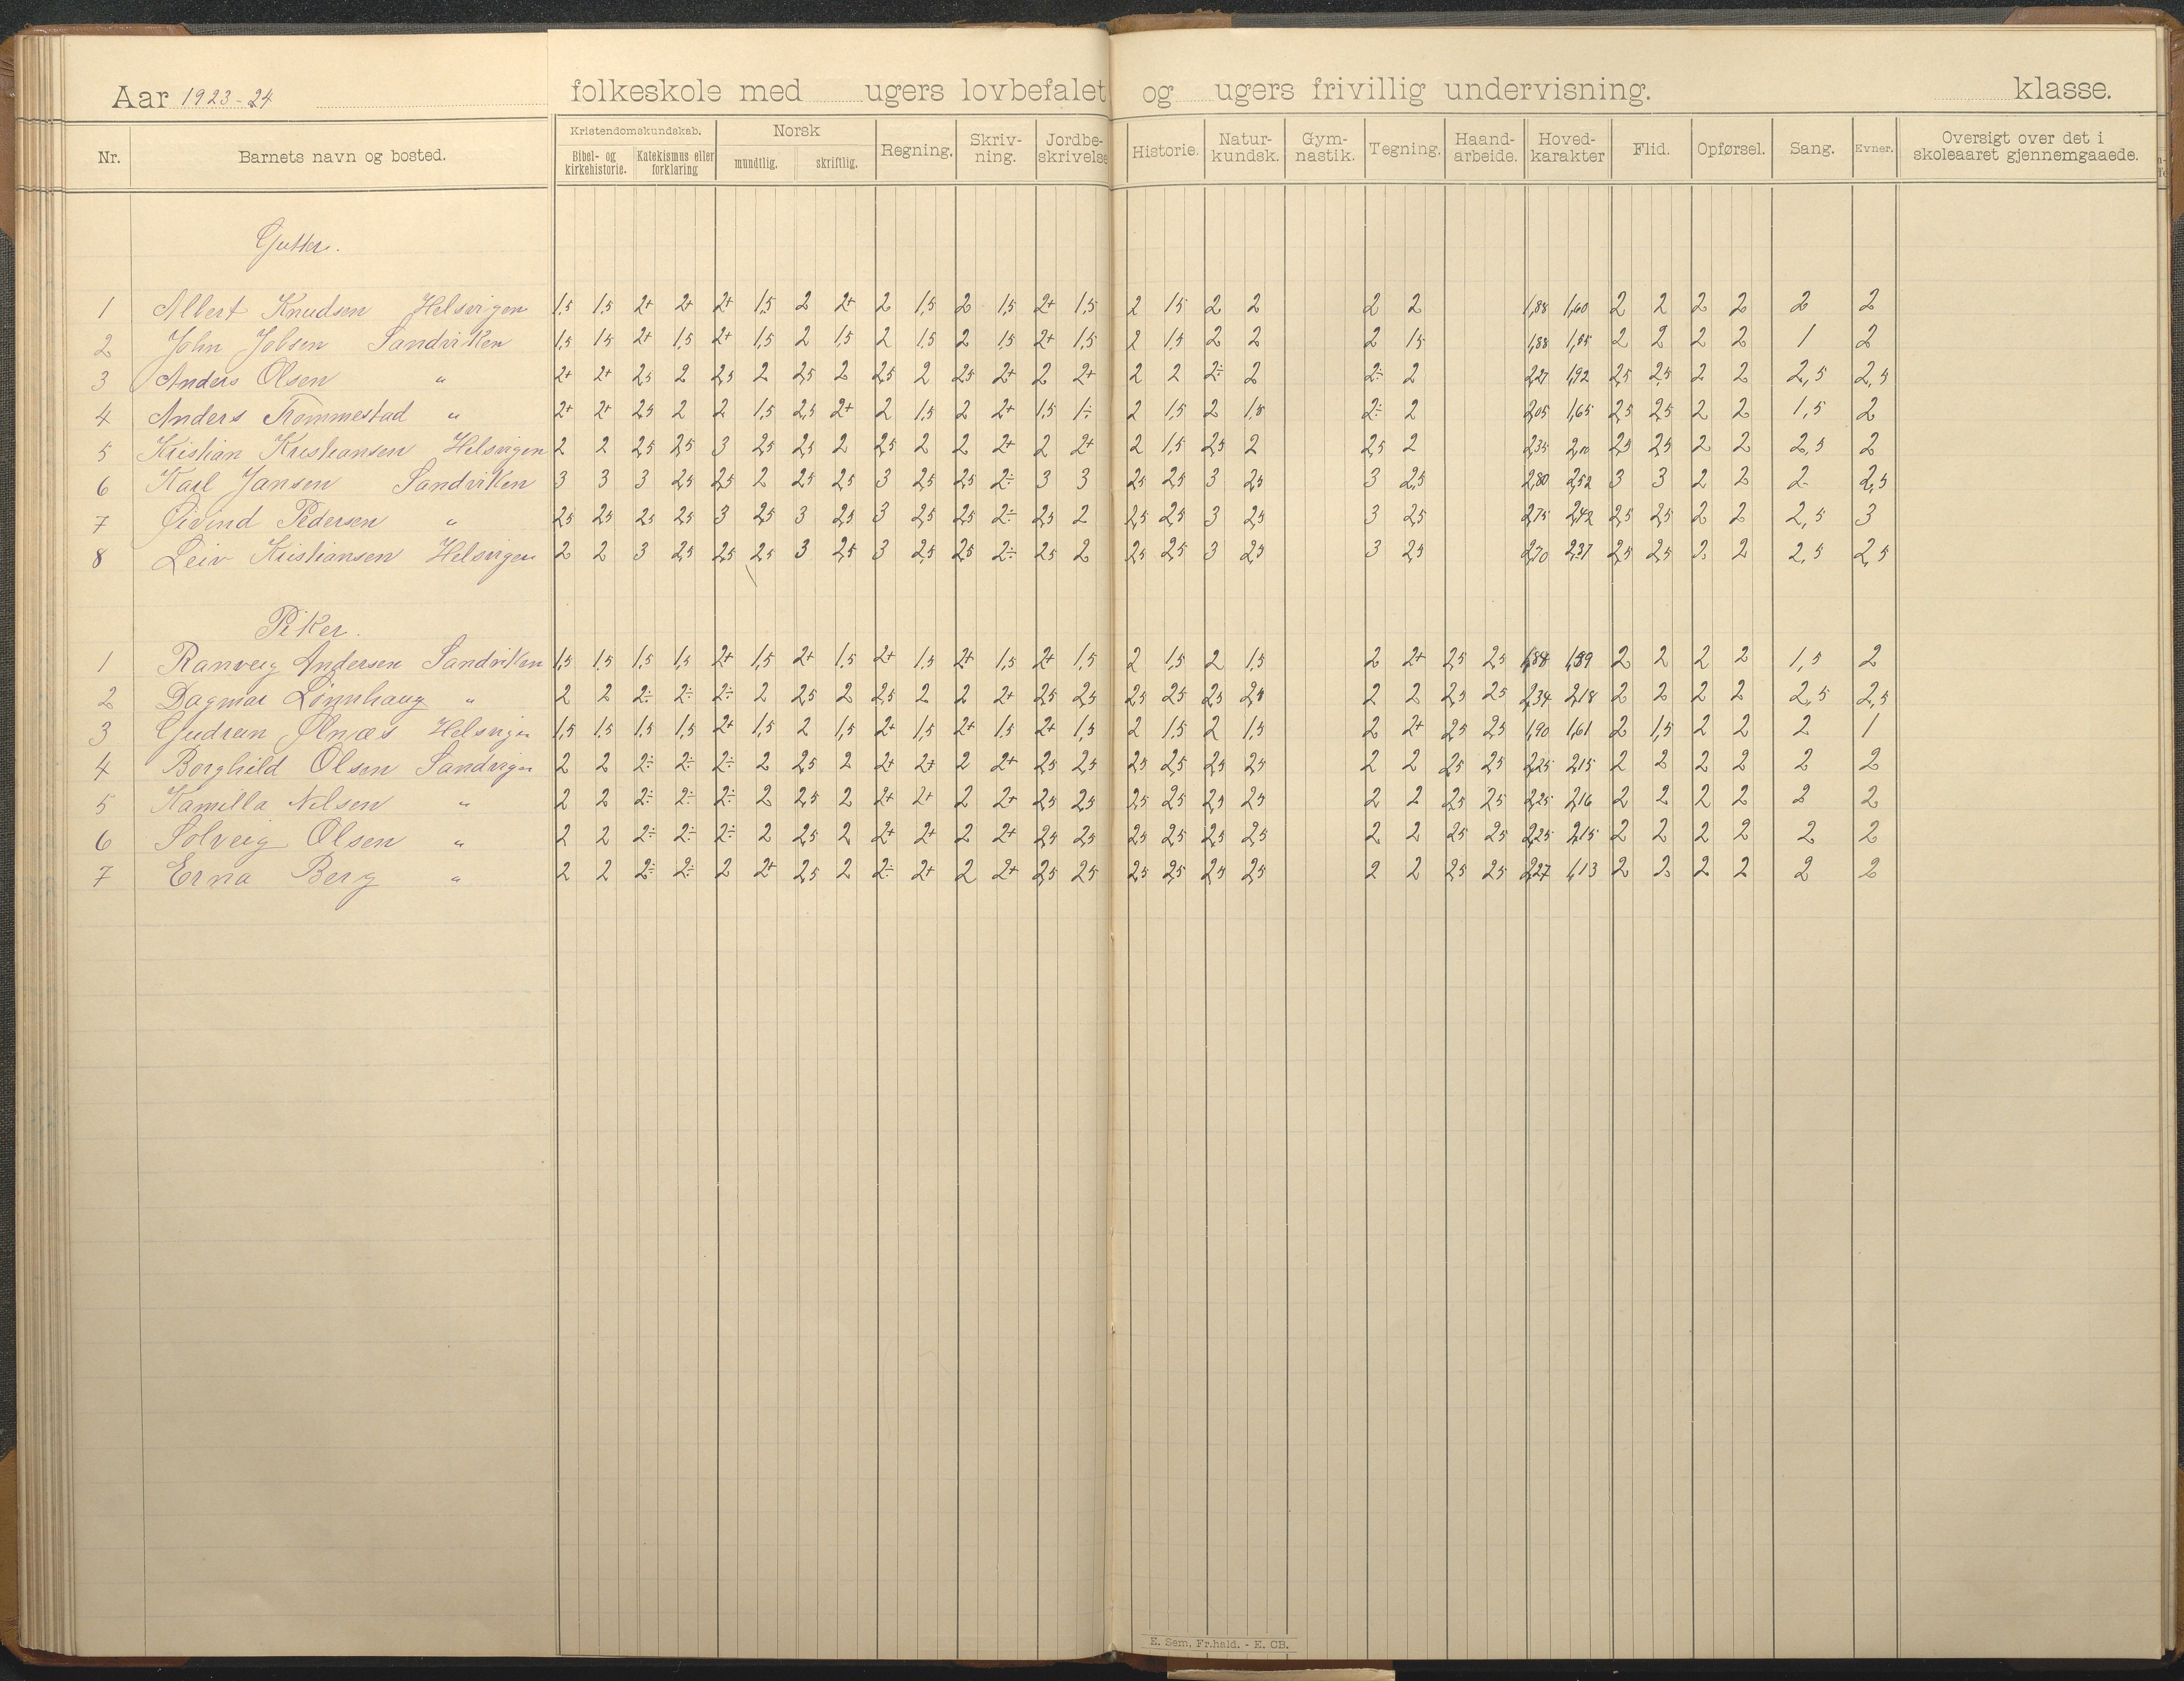 Aar 1923-24 folkeskole med ugers lovbefalet og ugers frivillig undervisning. klasse.
Nr. Barnets navn og bosted. Kristendomskundskab. Bibel- og kirkehistorie. Katekismus eller forklaring Norsk mundtlig. skriftlig. Regning. Skriv-ning. Jordbe-skrivelse Historie. Natur-kundsk. Gym-nastik. Tegning. Haand-arbeide. Hoved-karakter Flid. Opførsel. Sang. Evner. Oversigt over det i skoleaaret gjennemgaaede.
Gutter.
1 Albert Knudsen Helsvigen 1,5 1,5 2+ 2+ 2+ 1,5 2 2+ 2 1,5 2 1,5 2+ 1,5 2 1,5 2 2 2 2 1,88 1,60 2 2 2 2 2 2
2 John Jobsen Sandviken 1,5 1,5 2+ 1,5 2+ 1,5 2 1,5 2 1,5 2 1,5 2+ 1,5 2 1,5 2 2 2 1,5 1,88 2 2 2 2 1 2
3 Anders Olsen " 2+ 2+ 2,5 2 2,5 2 2,5 2 2,5 2 2,5 2+ 2 2+ 2 2 2÷ 2 2÷ 2 2,27 1,92 2,5 2,5 2 2 2,5 2,5
4 Anders Trommestad " 2+ 2+ 2,5 2 2 1,5 2,5 2+ 2 1,5 2 2+ 1,5 1÷ 2 1,5 2 1,5 2÷ 2 2,05 1,65 2,5 2,5 2 2 1,5 2
5 Kristian Kristiansen Helsvigen 2 2 2,5 2,5 3 2,5 2,5 2 2,5 2 2 2+ 2 2+ 2 1,5 2,5 2 2,5 2 2,35 2,10 2,5 2,5 2 2 2,5 2
6 Karl Jansen Sandviken 3 3 3 2,5 2,5 2 2,5 2,5 3 2,5 2,5 2÷ 3 3 2,5 2,5 3 2,5 3 2,5 2,80 2,52 3 3 2 2 2 2,5
7 Øivind Pedersen " 2,5 2,5 2,5 2,5 3 2,5 3 2,5 3 2,5 2,5 2÷ 2,5 2 2,5 2,5 3 2,5 3 2,5 2,75 2,42 2,5 2,5 2 2 2,5 3
8 Leiv Kristiansen Helsvigen 2 2 3 2,5 2,5 2,5 3 2,5 3 2,5 2,5 2÷ 2,5 2 2,5 2,5 3 2,5 3 2,5 2,70 2,37 2,5 2,5 2 2 2,5 2,5
Piker.
1 Ranveig Andersen Sandviken 1,5 1,5 1,5 1,5 2+ 1,5 2+ 1,5 2+ 1,5 2+ 1,5 2+ 1,5 2 1,5 2 1,5 2 2+ 2,5 2,5 1,88 1,59 2 2 2 2 1,5 2
2 Dagmar Lönnhaug " 2 2 2÷ 2÷ 2÷ 2 2,5 2 2,5 2 2 2+ 2,5 2,5 2,5 2,5 2,5 2,5 2 2 2,5 2,5 2,34 2,18 2 2 2 2 2,5 2,5
3 Gudrun Ølnæs Helsvigen 1,5 1,5 1,5 1,5 2+ 1,5 2 1,5 2+ 1,5 2+ 1,5 2+ 1,5 2 1,5 2 1,5 2 2+ 2,5 2,5 1,90 1,61 2 1,5 2 2 2 1
4 Borghild Olsen Sandvigen 2 2 2÷ 2÷ 2÷ 2 2,5 2 2+ 2+ 2 2+ 2,5 2,5 2,5 2,5 2,5 2,5 2 2 2,5 2,5 2,25 2,15 2 2 2 2 2 2
5 Kamilla Nilsen " 2 2 2÷ 2÷ 2÷ 2 2,5 2 2+ 2+ 2 2+ 2,5 2,5 2,5 2,5 2,5 2,5 2 2 2,5 2,5 2,25 2,16 2 2 2 2 2 2
6 Solveig Olsen " 2 2 2÷ 2÷ 2÷ 2 2,5 2 2+ 2+ 2 2+ 2,5 2,5 2,5 2,5 2,5 2,5 2 2 2,5 2,5 2,25 2,15 2 2 2 2 2 2
7 Erna Berg " 2 2 2÷ 2÷ 2 2+ 2,5 2 2÷ 2+ 2 2+ 2,5 2,5 2,5 2,5 2,5 2,5 2 2 2,5 2,5 2,27 1,13 2 2 2 2 2 2
E. Sem, Fr.hald. - E. CB.